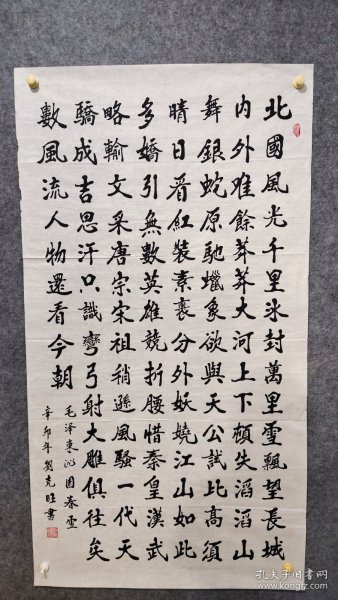 北國風光千里冰封萬里雪飄望長城
内外唯餘莽莽大河上下頓失滔滔山
舞銀蛇原馳蠟象欲與天公試比高須
晴日看紅裝素裹分外妖嬈江山如此
多嬌引無數英雄競折腰惜秦皇漢武
略輸文采唐宗宋祖稍遜風騷一代天
驕成吉思汗只識彎弓射大雕俱往矣
數風流人物還看今朝
毛泽東沁园春雪
辛卯年劉克旺書
孔夫子旧书网